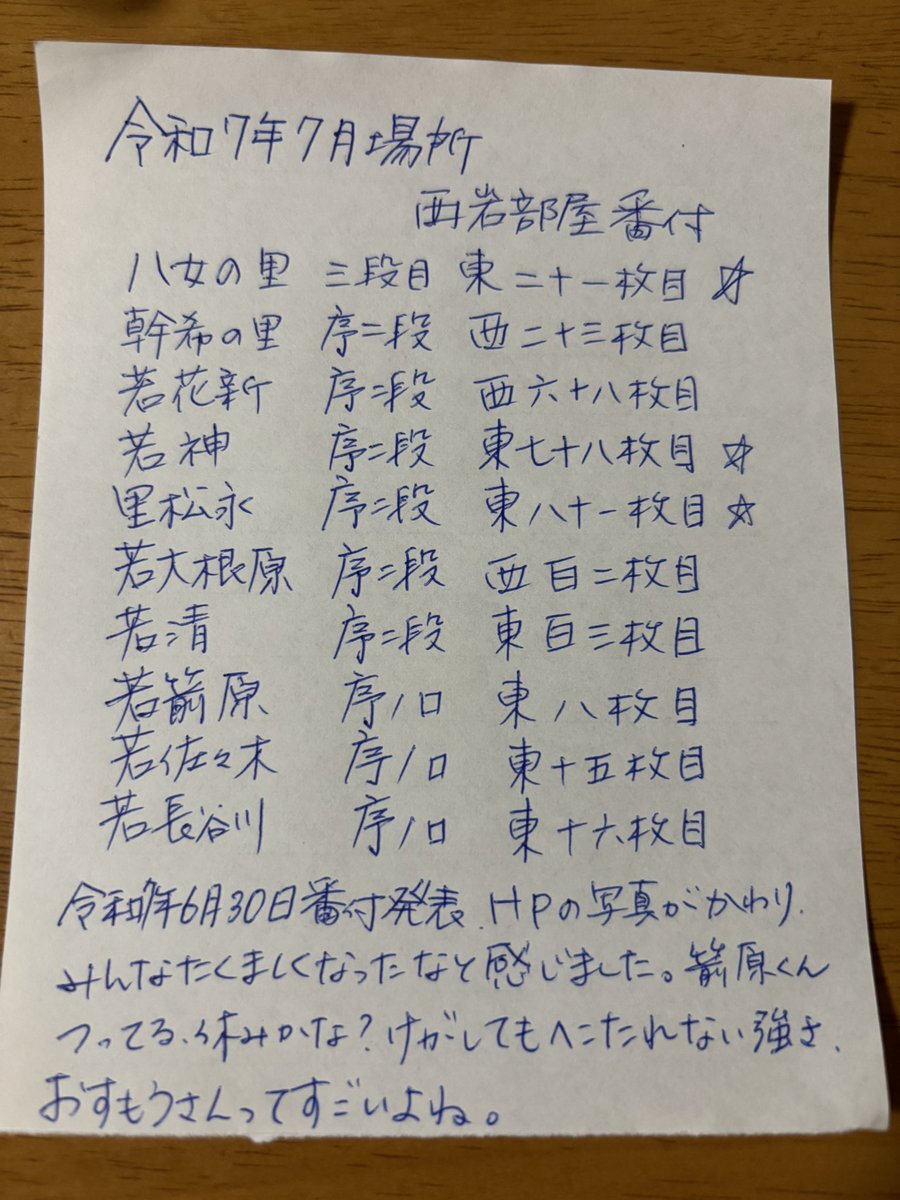 令和7年7月場所
西岩部屋番付
八女の里 三段目 東二十一枚目 ☆
幹希の里 序二段 西二十三枚目
若花新 序二段 西六十八枚目
若神 序二段 東七十八枚目 ☆
里松永 序二段 東八十一枚目 ☆
若大根原 序二段 西百二枚目
若清 序二段 東百三枚目
若箭原 序ノ口 東八枚目
若佐々木 序ノ口 東十五枚目
若長谷川 序ノ口 東十六枚目
令和7年6月30日番付発表、HPの写真がかわり、
みんなたくましくなったなと感じました。箭原くん
つってる、休みかな?けがしてもへこたれない強さ、
おすもうさんってすごいよね。